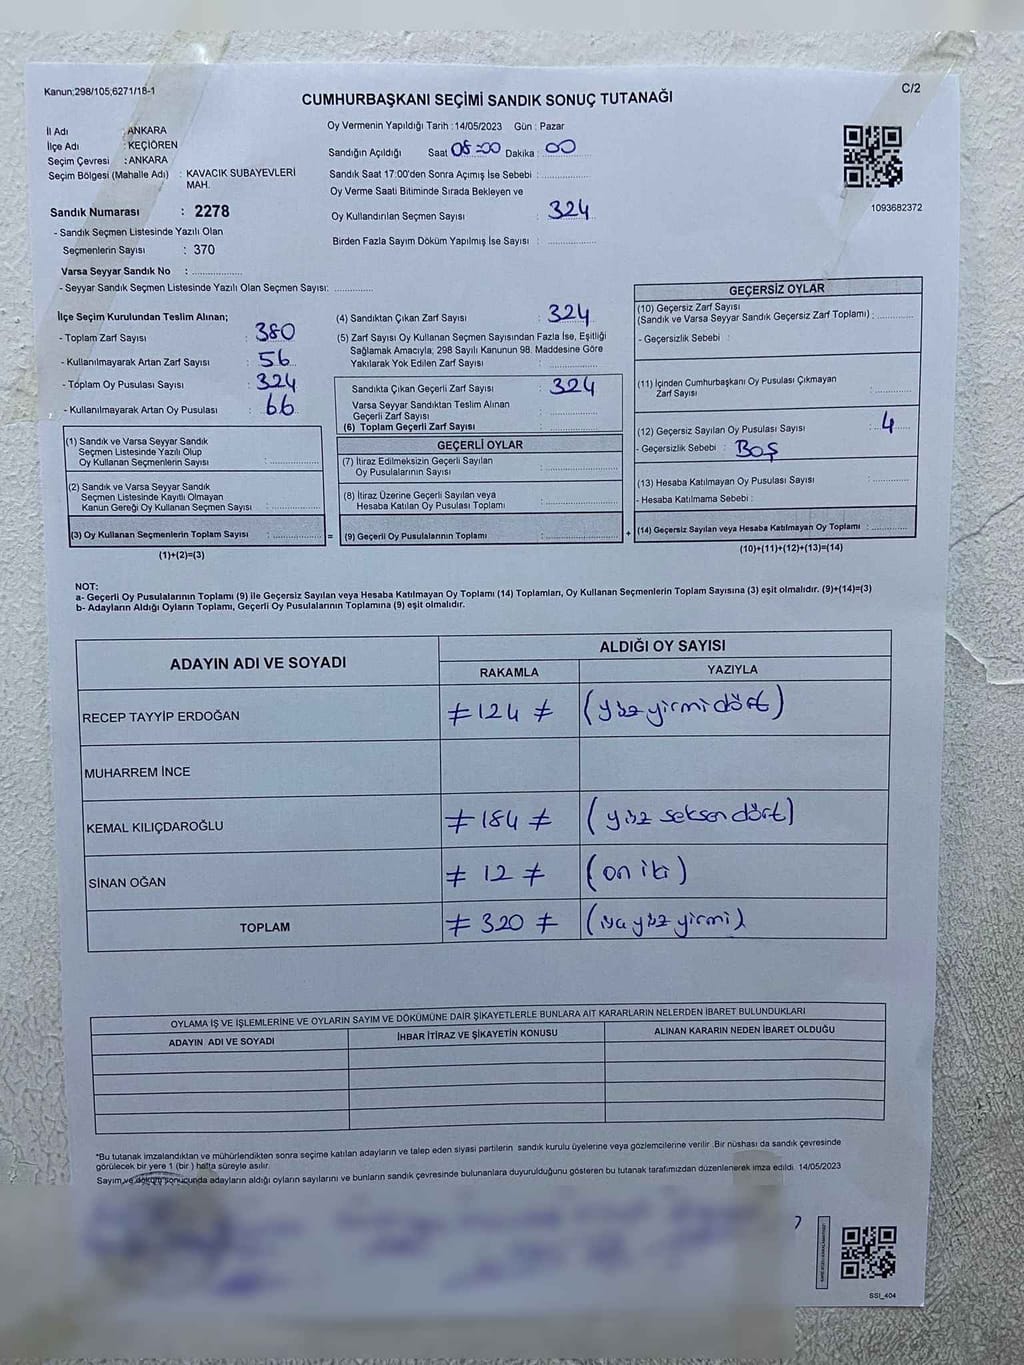 Kanun;298/105;6271/18-1
C/2
CUMHURBAŞKANI SEÇİMİ SANDIK SONUÇ TUTANAĞI
İl Adı : ANKARA
İlçe Adı : KEÇİÖREN
Seçim Çevresi : ANKARA
Seçim Bölgesi (Mahalle Adı) : KAVACIK SUBAYEVLERİ
MAH.
Sandık Numarası : 2278
- Sandık Seçmen Listesinde Yazılı Olan
Seçmenlerin Sayısı : 370
Varsa Seyyar Sandık No : ..................
- Seyyar Sandık Seçmen Listesinde Yazılı Olan Seçmen Sayısı: ..............
Oy Vermenin Yapıldığı Tarih : 14/05/2023 Gün : Pazar
Sandığın Açıldığı Saat 08:00 Dakika : 00
Sandık Saat 17:00'den Sonra Açımış İse Sebebi : ................
Oy Verme Saati Bitiminde Sırada Bekleyen ve
Oy Kullandırılan Seçmen Sayısı : 324
Birden Fazla Sayım Döküm Yapılmış İse Sayısı : ................
1093682372
İlçe Seçim Kurulundan Teslim Alınan;
- Toplam Zarf Sayısı : 380
- Kullanılmayarak Artan Zarf Sayısı : 56
- Toplam Oy Pusulası Sayısı : 324
- Kullanılmayarak Artan Oy Pusulası : 66
(1) Sandık ve Varsa Seyyar Sandık
Seçmen Listesinde Yazılı Olup
Oy Kullanan Seçmenlerin Sayısı : ................
(2) Sandık ve Varsa Seyyar Sandık
Seçmen Listesinde Kayıtlı Olmayan
Kanun Gereği Oy Kullanan Seçmen Sayısı : ................
(3) Oy Kullanan Seçmenlerin Toplam Sayısı : ................
(1)+(2)=(3)
=
(4) Sandıktan Çıkan Zarf Sayısı : 324
(5) Zarf Sayısı Oy Kullanan Seçmen Sayısından Fazla İse, Eşitliği
Sağlamak Amacıyla; 298 Sayılı Kanunun 98. Maddesine Göre
Yakılarak Yok Edilen Zarf Sayısı : ................
Sandıkta Çıkan Geçerli Zarf Sayısı : 324
Varsa Seyyar Sandıktan Teslim Alınan
Geçerli Zarf Sayısı : ................
(6) Toplam Geçerli Zarf Sayısı : ................
GEÇERLİ OYLAR
(7) İtiraz Edilmeksizin Geçerli Sayılan
Oy Pusulalarının Sayısı : ................
(8) İtiraz Üzerine Geçerli Sayılan veya
Hesaba Katılan Oy Pusulası Toplamı : ................
(9) Geçerli Oy Pusulalarının Toplamı : ................
+
GEÇERSİZ OYLAR
(10) Geçersiz Zarf Sayısı
(Sandık ve Varsa Seyyar Sandık Geçersiz Zarf Toplamı) : ............
- Geçersizlik Sebebi :
(11) İçinden Cumhurbaşkanı Oy Pusulası Çıkmayan
Zarf Sayısı : ............
(12) Geçersiz Sayılan Oy Pusulası Sayısı : 4
- Geçersizlik Sebebi : BOŞ
(13) Hesaba Katılmayan Oy Pusulası Sayısı : ............
- Hesaba Katılmama Sebebi :
(14) Geçersiz Sayılan veya Hesaba Katılmayan Oy Toplamı : ............
(10)+(11)+(12)+(13)=(14)
NOT:
a- Geçerli Oy Pusulalarının Toplamı (9) ile Geçersiz Sayılan veya Hesaba Katılmayan Oy Toplamı (14) Toplamları, Oy Kullanan Seçmenlerin Toplam Sayısına (3) eşit olmalıdır. (9)+(14)=(3)
b- Adayların Aldığı Oyların Toplamı, Geçerli Oy Pusulalarının Toplamına (9) eşit olmalıdır.
ADAYIN ADI VE SOYADI
ALDIĞI OY SAYISI
RAKAMLA YAZIYLA
RECEP TAYYİP ERDOĞAN ≠ 124 ≠ (yüz yirmi dört)
MUHARREM İNCE
KEMAL KILIÇDAROĞLU ≠ 184 ≠ (yüz seksen dört)
SİNAN OĞAN ≠ 12 ≠ (on iki)
TOPLAM ≠ 320 ≠ (üç yüz yirmi)
OYLAMA İŞ VE İŞLEMLERİNE VE OYLARIN SAYIM VE DÖKÜMÜNE DAİR ŞİKAYETLERLE BUNLARA AİT KARARLARIN NELERDEN İBARET BULUNDUKLARI
ADAYIN ADI VE SOYADI İHBAR İTİRAZ VE ŞİKAYETİN KONUSU ALINAN KARARIN NEDEN İBARET OLDUĞU
*Bu tutanak imzalandıktan ve mühürlendikten sonra seçime katılan adayların ve talep eden siyasi partilerin sandık kurulu üyelerine veya gözlemcilerine verilir .Bir nüshası da sandık çevresinde
görülecek bir yere 1 (bir ) hafta süreyle asılır.
Sayım ve döküm sonucunda adayların aldığı oyların sayılarını ve bunların sandık çevresinde bulunanlara duyurulduğunu gösteren bu tutanak tarafımızdan düzenlenerek imza edildi. 14/05/2023
SSI_404